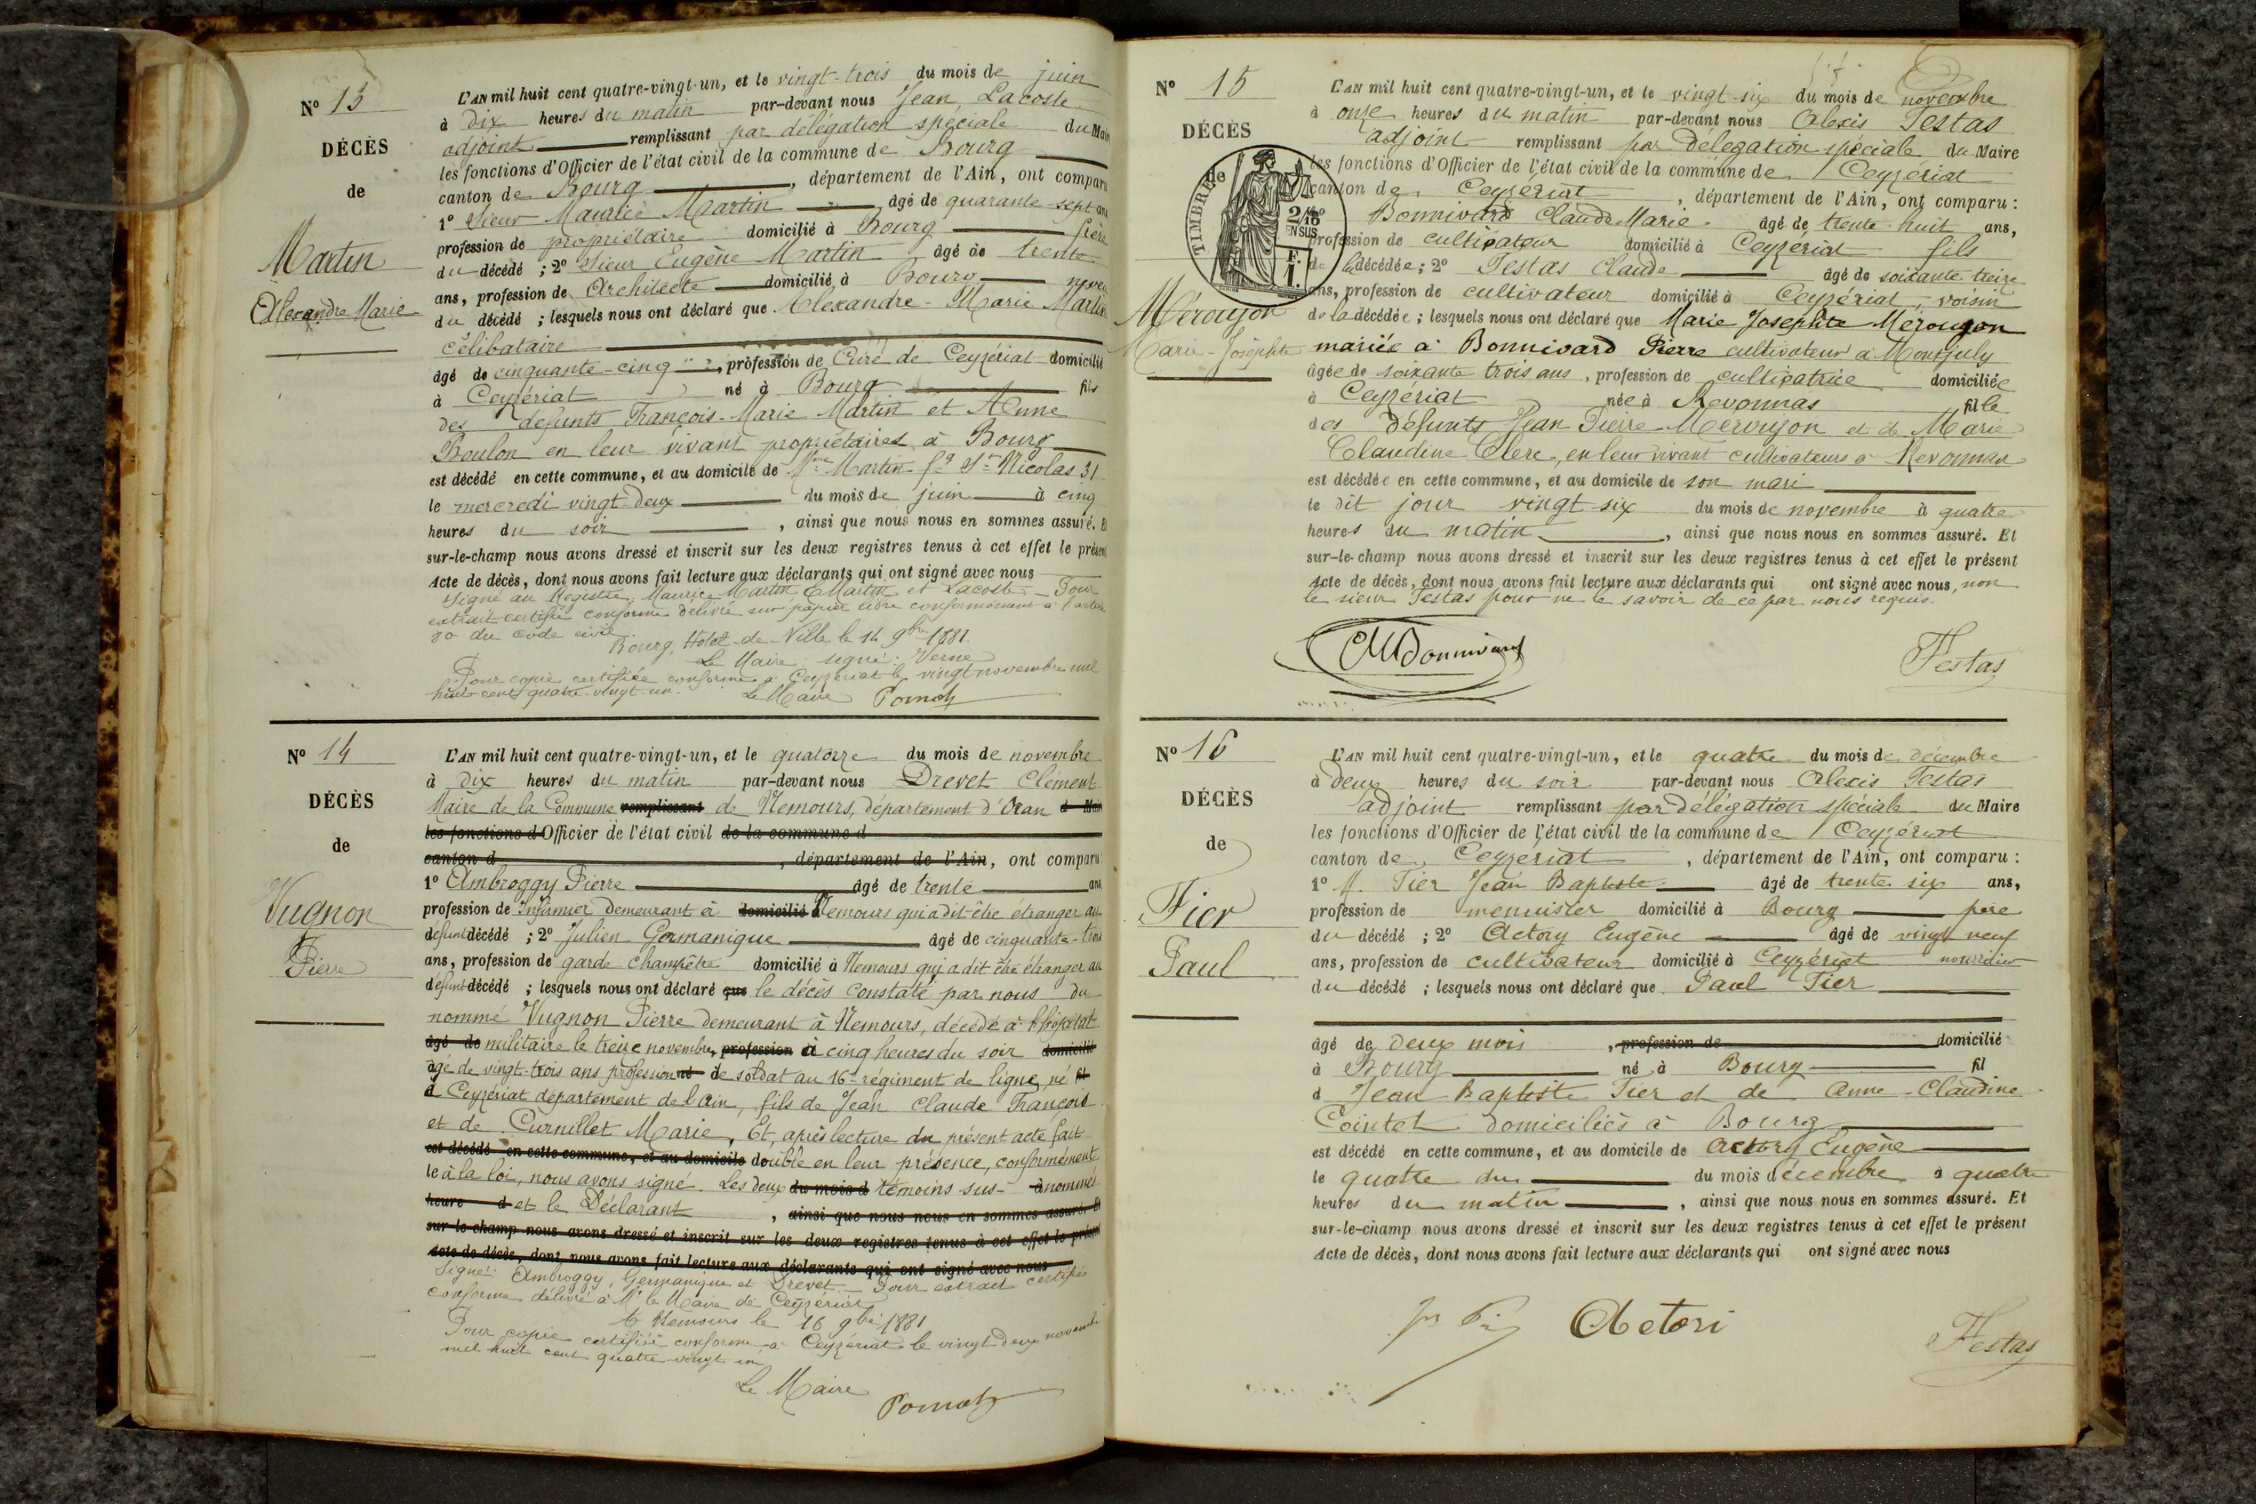 N° 13
DÉCÈS
de
Martin
Alexandre Marie
L'AN mil huit cent quatre-vingt-un, et le vingt-trois du mois de juin
à dix heures du matin par-devant nous Jean, Lacoste
adjoint remplissant par délégation spéciale du Maire
les fonctions d'Officier de l'état civil de la commune de Bourg
canton de Bourg, département de l'Ain, ont comparu
1° Sieur Maurice Martin âgé de quarante-sept ans
profession de propriétaire domicilié à Bourg frère
du décédé ; 2° Sieur Eugène Martin âgé de trente
ans, profession de Architecte domicilié à Bourg neveu
du décédé ; lesquels nous ont déclaré que Alexandre-Marie Martin
célibataire
âgé de cinquante-cinq, profession de Curé de Ceyzériat domicilié
à Ceyzériat né à Bourg fils
des défunts François-Marie Martin et Anne
Boulon en leur vivant propriétaires à Bourg
est décédé en cette commune, et au domicile de Mme Martin fg St Nicolas 31
le mercredi vingt-deux du mois de juin à cinq
heures du soir, ainsi que nous nous en sommes assuré. Et
sur-le-champ nous avons dressé et inscrit sur les deux registres tenus à cet effet le présent
Acte de décès, dont nous avons fait lecture aux déclarants qui ont signé avec nous
Signé au Registre, Maurice Martin E Martin et Lacoste - Pour
extrait certifié conforme délivré sur papier libre conformément à l'article
80 du code civil
Bourg, Hotel-de-Ville le 14 9bre 1881.
Le Maire signé : Verne
Pour copie certifiée conforme à Ceyzériat le vingt novembre mil
huit cent quatre-vingt-un.
Le Maire Pomat
N° 14
DÉCÈS
de
Vugnon
Pierre
L'AN mil huit cent quatre-vingt-un, et le quatorze du mois de novembre
à dix heures du matin par-devant nous Drevet Clément
Maire de la Commune remplissant de Nemours, département d'Oran d Mai
les fonctions d Officier de l'état civil de la commune d
canton d, département de l'Ain, ont comparu
1° Ambroggy Pierre âgé de trente ans
profession de Infirmier demeurant à domicilié à Nemours qui a dit être étranger au
défunt décédé ; 2° Julien Germanique âgé de cinquante-trois
ans, profession de garde champêtre domicilié à Nemours qui a dit être étranger au
défunt décédé ; lesquels nous ont déclaré que le décès constaté par nous du
nommé Vugnon Pierre demeurant à Nemours, décédé à l'hôpital
âgé de militaire le treize novembre, profession à cinq heures du soir domicilié
âgé de vingt-trois ans profession né de soldat au 16e régiment de ligne, né fil
à Ceyzériat département de l'ain, fils de Jean Claude François
et de Curnillet Marie, Et, après lecture du présent acte fait
est décédé en cette commune, et au domicile double en leur présence, conformément
le à la loi, nous avons signé. Les deux du mois d témoins sus- à nommés
heure d et le Déclarant, ainsi que nous nous en sommes assuré. Et
sur-le-champ nous avons dressé et inscrit sur les deux registres tenus à cet effet le présent
Acte de décès, dont nous avons fait lecture aux déclarants qui ont signé avec nous
Signé: Ambroggy, Germanique et Drevet - Pour extrait certifié
conforme délivré à Mr le Maire de Ceyzériat
Nemours le 16 9bre 1881
Pour copie certifiée conforme à Ceyzériat le vingt deux novembre
mil huit cent quatre-vingt un
Le Maire
Pomat
N° 15
DÉCÈS
de
TIMBRE
2/10 EN SUS
F. 1.
Mérougon
Marie-Josephte
L'AN mil huit cent quatre-vingt-un, et le vingt-six du mois de novembre
à onze heures du matin par-devant nous Alexis Testas
adjoint remplissant par délégation spéciale du Maire
les fonctions d'Officier de l'état civil de la commune de Ceyzériat
canton de Ceyzériat, département de l'Ain, ont comparu :
Bonnivard Claude Marie âgé de trente-huit ans,
profession de cultivateur domicilié à Ceyzériat fils
de la décédée ; 2° Testas Claude âgé de soixante-treize
ans, profession de cultivateur domicilié à Ceyzériat, voisin
de la décédée ; lesquels nous ont déclaré que Marie Josephte Mérougon
mariée à Bonnivard Pierre cultivateur à Montjuly
âgée de soixante trois ans, profession de cultivatrice domiciliée
à Ceyzériat née à Revonnas fille
des défunts Jean Pierre Mérougon et de Marie
Claudine Clerc, en leur vivant cultivateurs à Revonnas
est décédée en cette commune, et au domicile de son mari
le dit jour vingt-six du mois de novembre à quatre
heures du matin, ainsi que nous nous en sommes assuré. Et
sur-le-champ nous avons dressé et inscrit sur les deux registres tenus à cet effet le présent
Acte de décès, dont nous avons fait lecture aux déclarants qui ont signé avec nous, non
le sieur Testas pour ne le savoir de ce par nous requis.
CMBonnivard
Testas
N° 16
DÉCÈS
de
Fier
Paul
L'AN mil huit cent quatre-vingt-un, et le quatre du mois de décembre
à deux heures du soir par-devant nous Alexis Testas
adjoint remplissant par délégation spéciale du Maire
les fonctions d'Officier de l'état civil de la commune de Ceyzériat
canton de Ceyzériat, département de l'Ain, ont comparu :
1° M. Fier Jean Baptiste âgé de trente-six ans,
profession de menuisier domicilié à Bourg père
du décédé ; 2° Actory Eugène âgé de vingt neuf
ans, profession de cultivateur domicilié à Ceyzériat nourricier
du décédé ; lesquels nous ont déclaré que Paul Fier
âgé de deux mois, profession de domicilié
à Bourg né à Bourg fil
d Jean Baptiste Fier et de Anne-Claudine
Cointet domiciliés à Bourg
est décédé en cette commune, et au domicile de Actory Eugène
le quatre du du mois décembre à quatre
heures du matin, ainsi que nous nous en sommes assuré. Et
sur-le-champ nous avons dressé et inscrit sur les deux registres tenus à cet effet le présent
Acte de décès, dont nous avons fait lecture aux déclarants qui ont signé avec nous
Actori
Testas